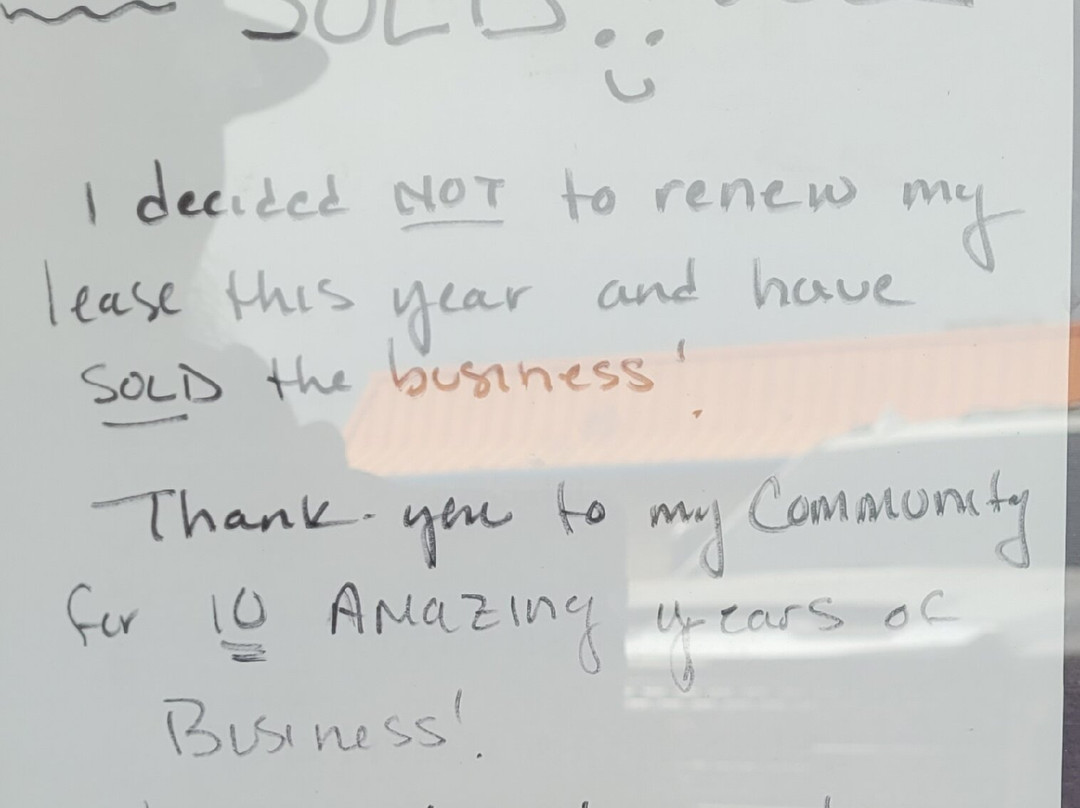 SOLD :)
I decided NOT to renew my
lease this year and have
SOLD the business!
Thank-you to my Community
for 10 AMAZING years of
Business!